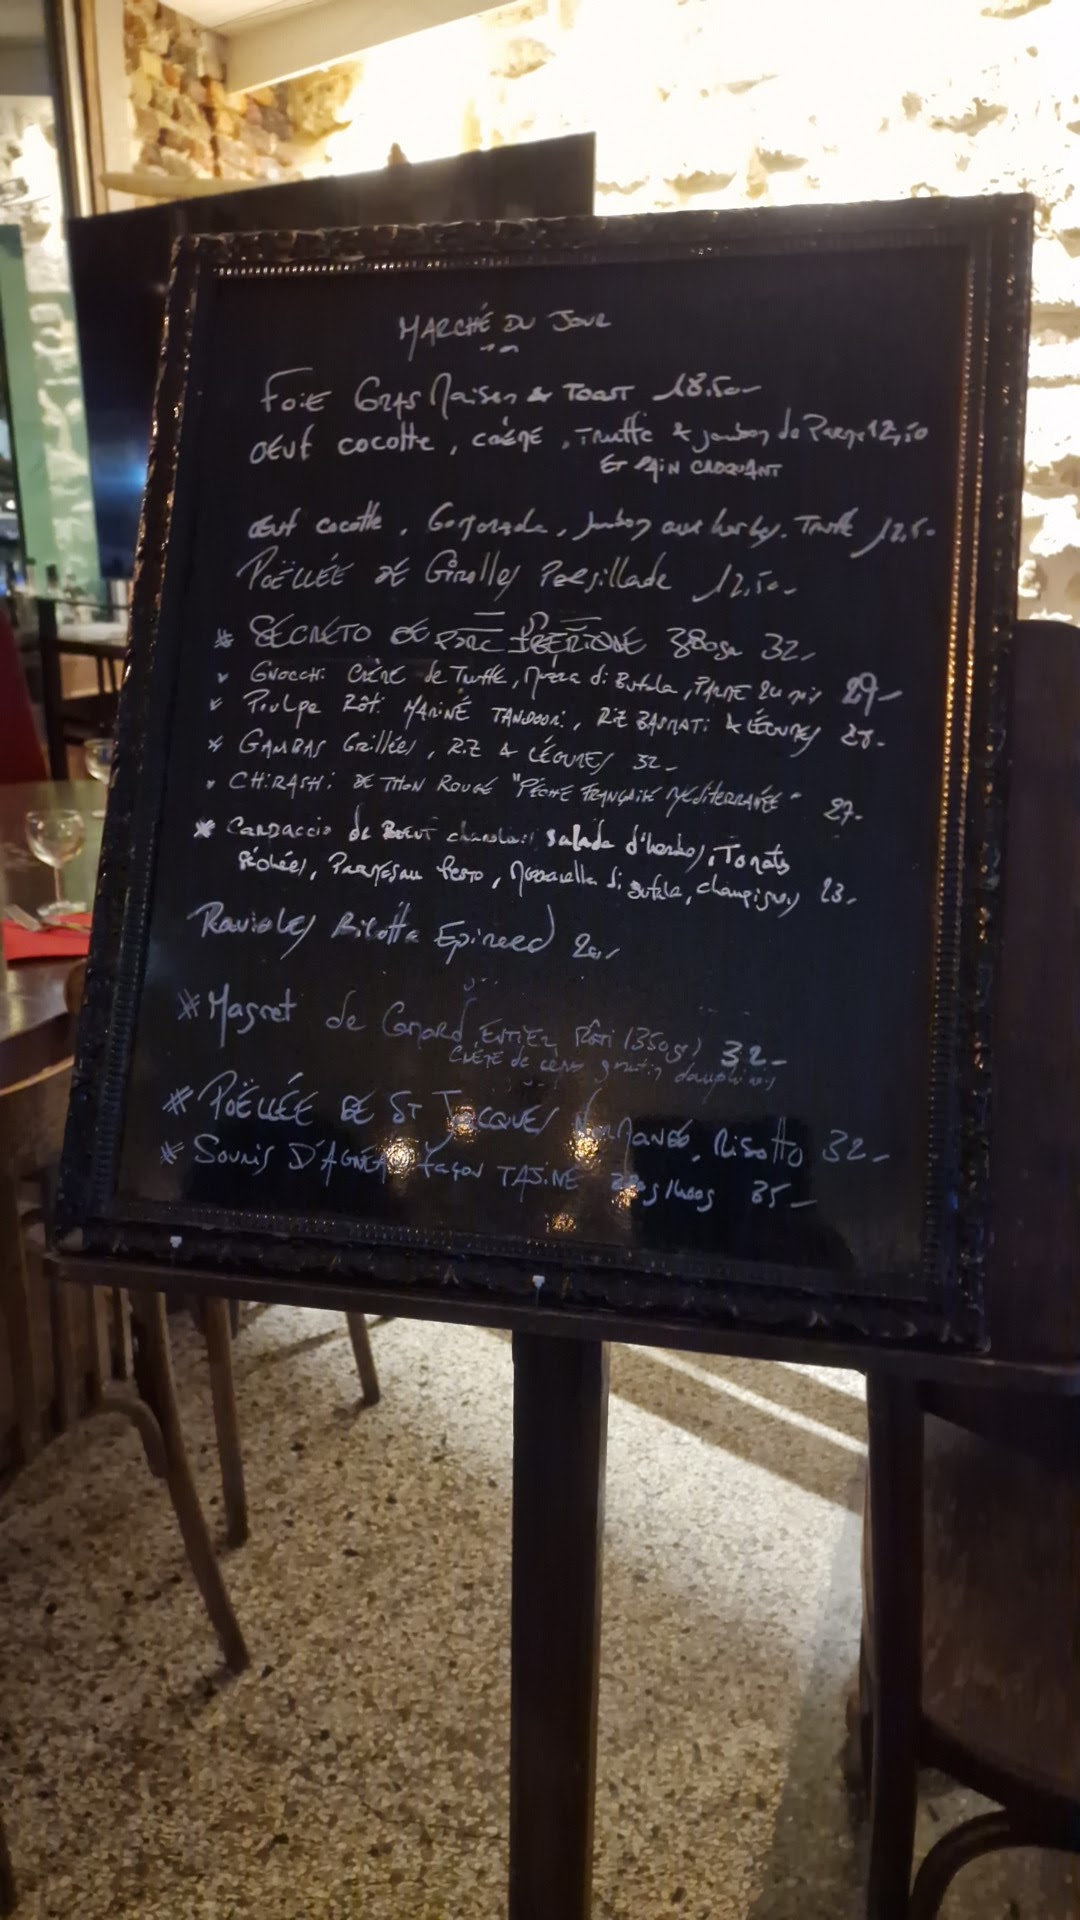 MARCHÉ DU JOUR
FOIE GRAS Maison & TOAST 18,50-
OEUF cocotte, CRÈME, Truffe & jambon de Parme 12,50
ET PAIN CROQUANT
OEuf cocotte, Gorgonzola, jambon aux herbes, Truffe 12,50-
POËLLÉE DE Girolles Persillade 12,50-
* SECRETO DE PORC IBERIQUE 380gr 32-
* GNOCCHI CRÈME de TRUFFE, Mozza di Bufala, PARME 24 mois 29-
* Poulpe Rôti MARINÉ TANDOORI, RIZ BASMATI & LÉGUMES 28-
* GAMBAS Grillées, RIZ & LÉGUMES 32-
* CHIRASHI DE THON ROUGE "PÊCHE FRANÇAISE MÉDITERRANÉE" 27-
* CARPACCIO de BOEUF charolais salade d'herbes, Tomates
séchées, Parmesan Pesto, Mozzarella di Bufala, champignons 23-
Ravioles Ricotta Epinard 20,-
* Magret de Canard ENTIER Rôti (350gr) 32-
CRÈME de cèpes gratin dauphinois
* POËLLÉE DE ST JACQUES Normandes, Risotto 32-
* SOURIS D'AGNEAU façon TAJINE /400g 35-